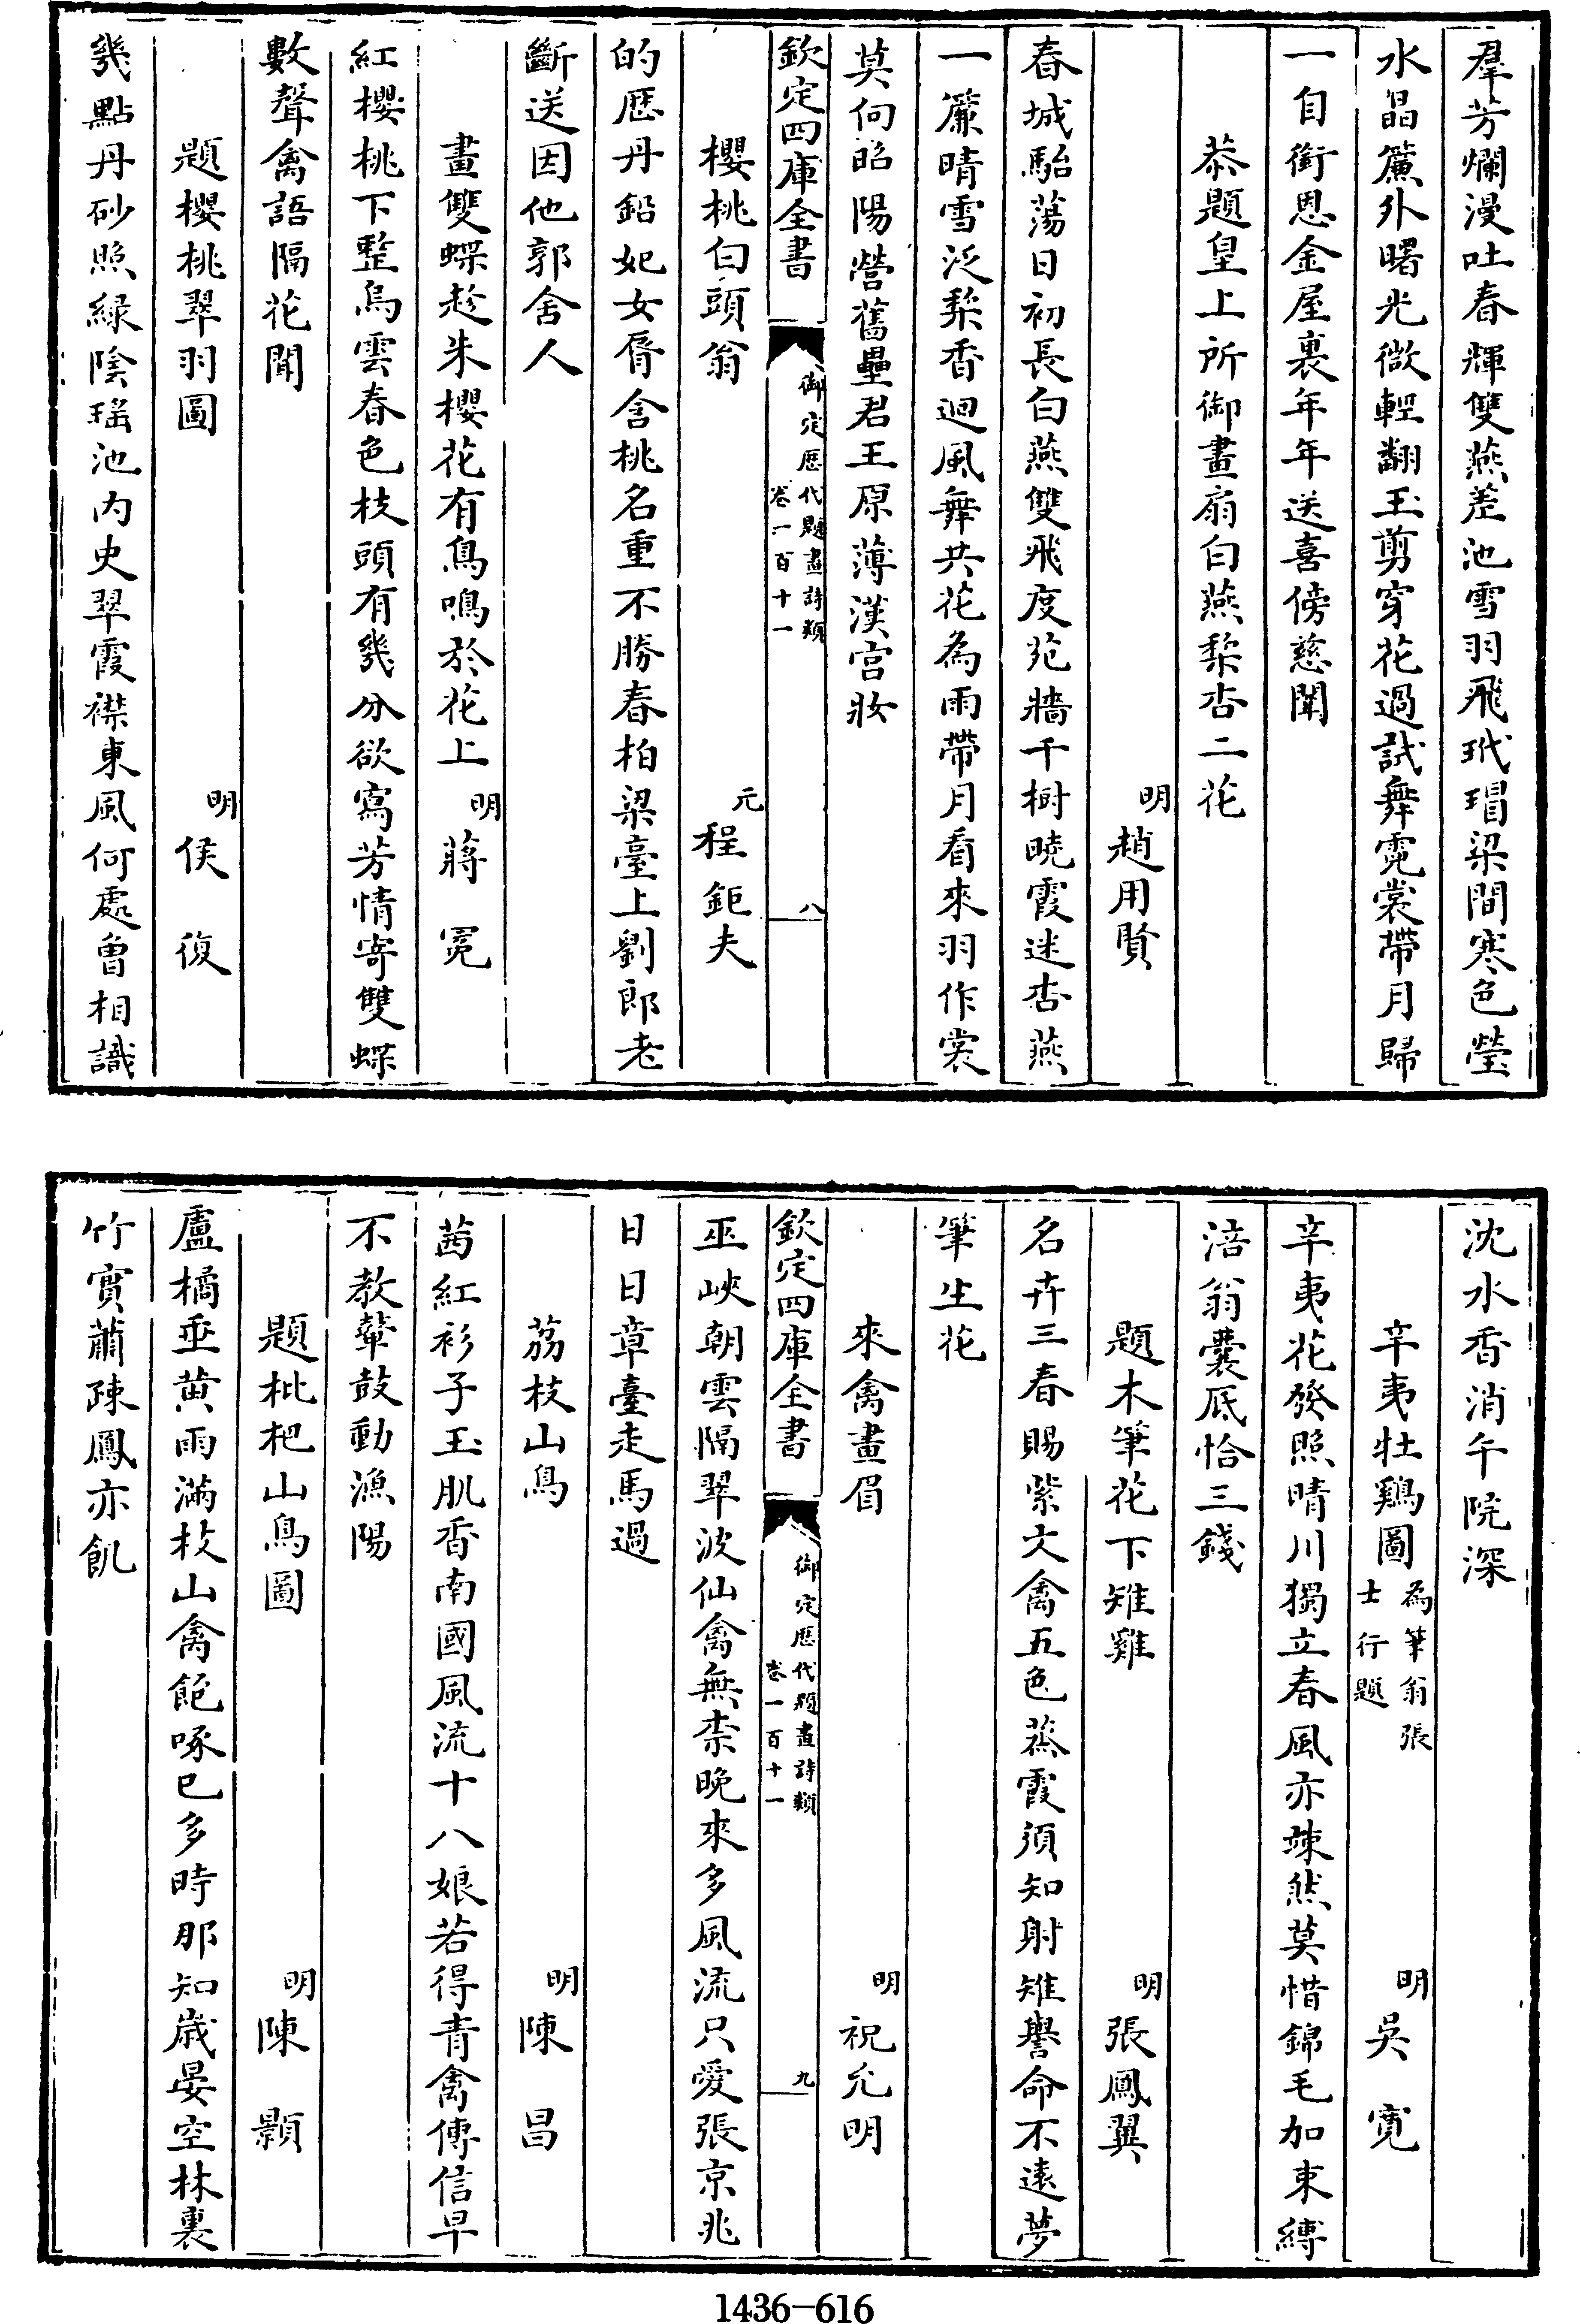 羣芳爛漫吐春輝雙燕差池雪羽飛玳瑁梁間寒色瑩
水晶簾外曙光微輕翻玉剪穿花過試舞霓裳帶月歸
一自銜恩金屋裏年年送喜傍慈闈
恭題皇上所御畫扇白燕梨杏二花
明趙用賢
春城駘蕩日初長白燕雙飛度苑牆千樹曉霞迷杏燕
一簾晴雪泛梨香迴風舞共花為雨帶月看來羽作裳
莫向昭陽營舊壘君王原薄漢宫妝
欽定四庫全書
御定歷代題畫詩類
卷一百十一
八
櫻桃白頭翁
元程鉅夫
的歷丹鉛妃女脣含桃名重不勝春柏梁臺上劉郎老
斷送因他郭舍人
畫雙蝶趁朱櫻花有鳥鳴於花上
明蔣冕
紅櫻桃下整烏雲春色枝頭有幾分欲寫芳情寄雙蝶
數聲禽語隔花聞
題櫻桃翠羽圖
明侯復
幾點丹砂照緑陰瑤池内史翠霞襟東風何處曾相識
沈水香消午院深
辛夷牡鷄圖
為筆翁張
士行題
明吳寛
辛夷花發照晴川獨立春風亦竦然莫惜錦毛加束縛
涪翁囊底恰三錢
題木筆花下雉雞
明張鳳翼
名卉三春賜紫文禽五色蒸霞須知射雉譽命不遠夢
筆生花
來禽畫眉
明祝允明
欽定四庫全書
御定歷代題畫詩類
卷一百十一
九
巫峽朝雲隔翠波仙禽無柰晚來多風流只愛張京兆
日日章臺走馬過
荔枝山鳥
明陳昌
茜紅衫子玉肌香南國風流十八娘若得青禽傳信早
不教鼙鼓動漁陽
題枇杷山鳥圖
明陳顥
盧橘垂黄雨滿枝山禽飽啄已多時那知歲晏空林裏
竹實蕭疎鳳亦飢
1436-616